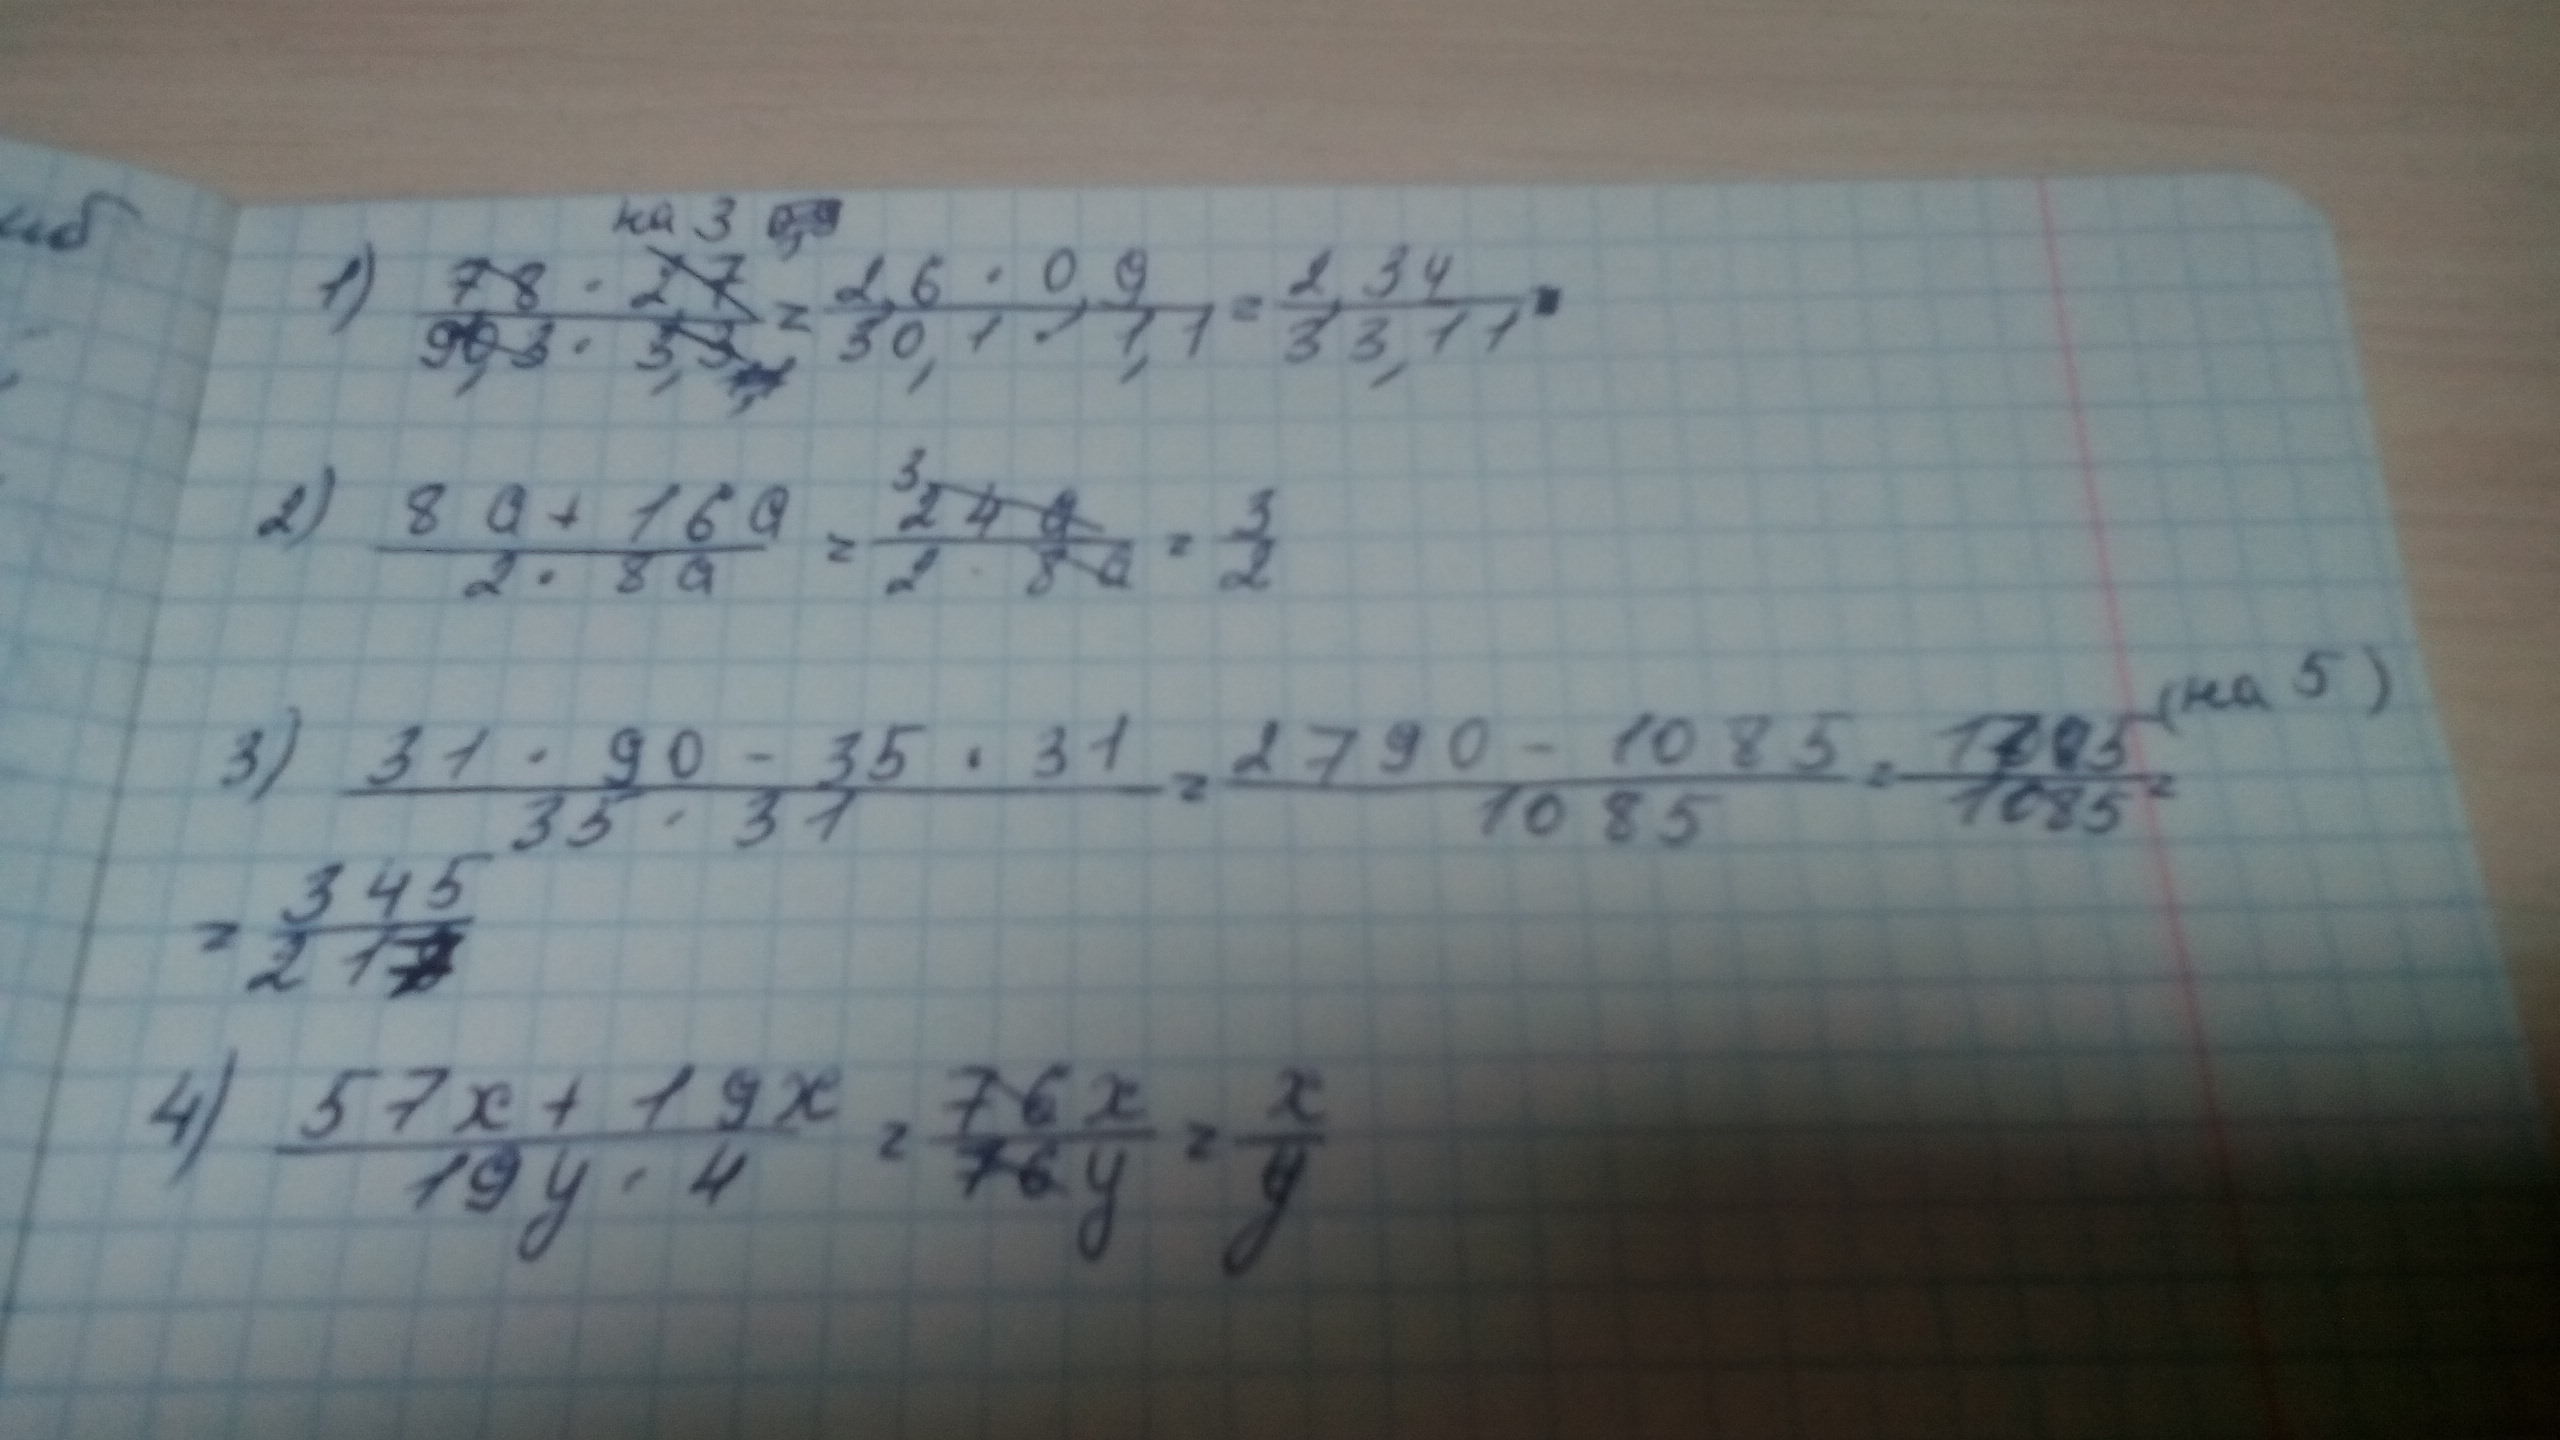 на 3 0,9
1) 78 · 27 / 90,3 · 3,3 = 2,6 · 0,9 / 30,1 · 1,1 = 2,34 / 33,11
2) 8a + 16a / 2 · 8a = 24a / 2 · 8a = 3/2
3
3) 31 · 90 - 35 · 31 / 35 · 31 = 2790 - 1085 / 1085 = / 1085 (на 5) =
= 345 / 217
4) 57x + 19x / 19y · 4 = 76x / 76y = x/y